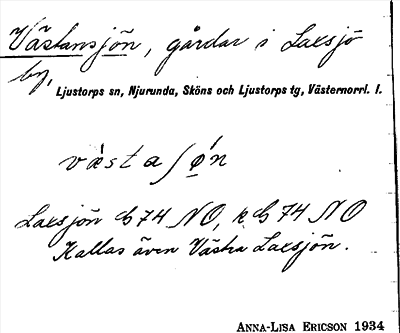 Västansjön, gårdar i Laxsjö
by,
Ljustorps sn, Njurunda, Sköns och Ljustorps tg, Västernorrl. l.
væ̀staʃǿn
Laxsjön G74 NO, k G 74 NO
Kallas även Västra Laxsjön.
ANNA-LISA ERICSON 1934